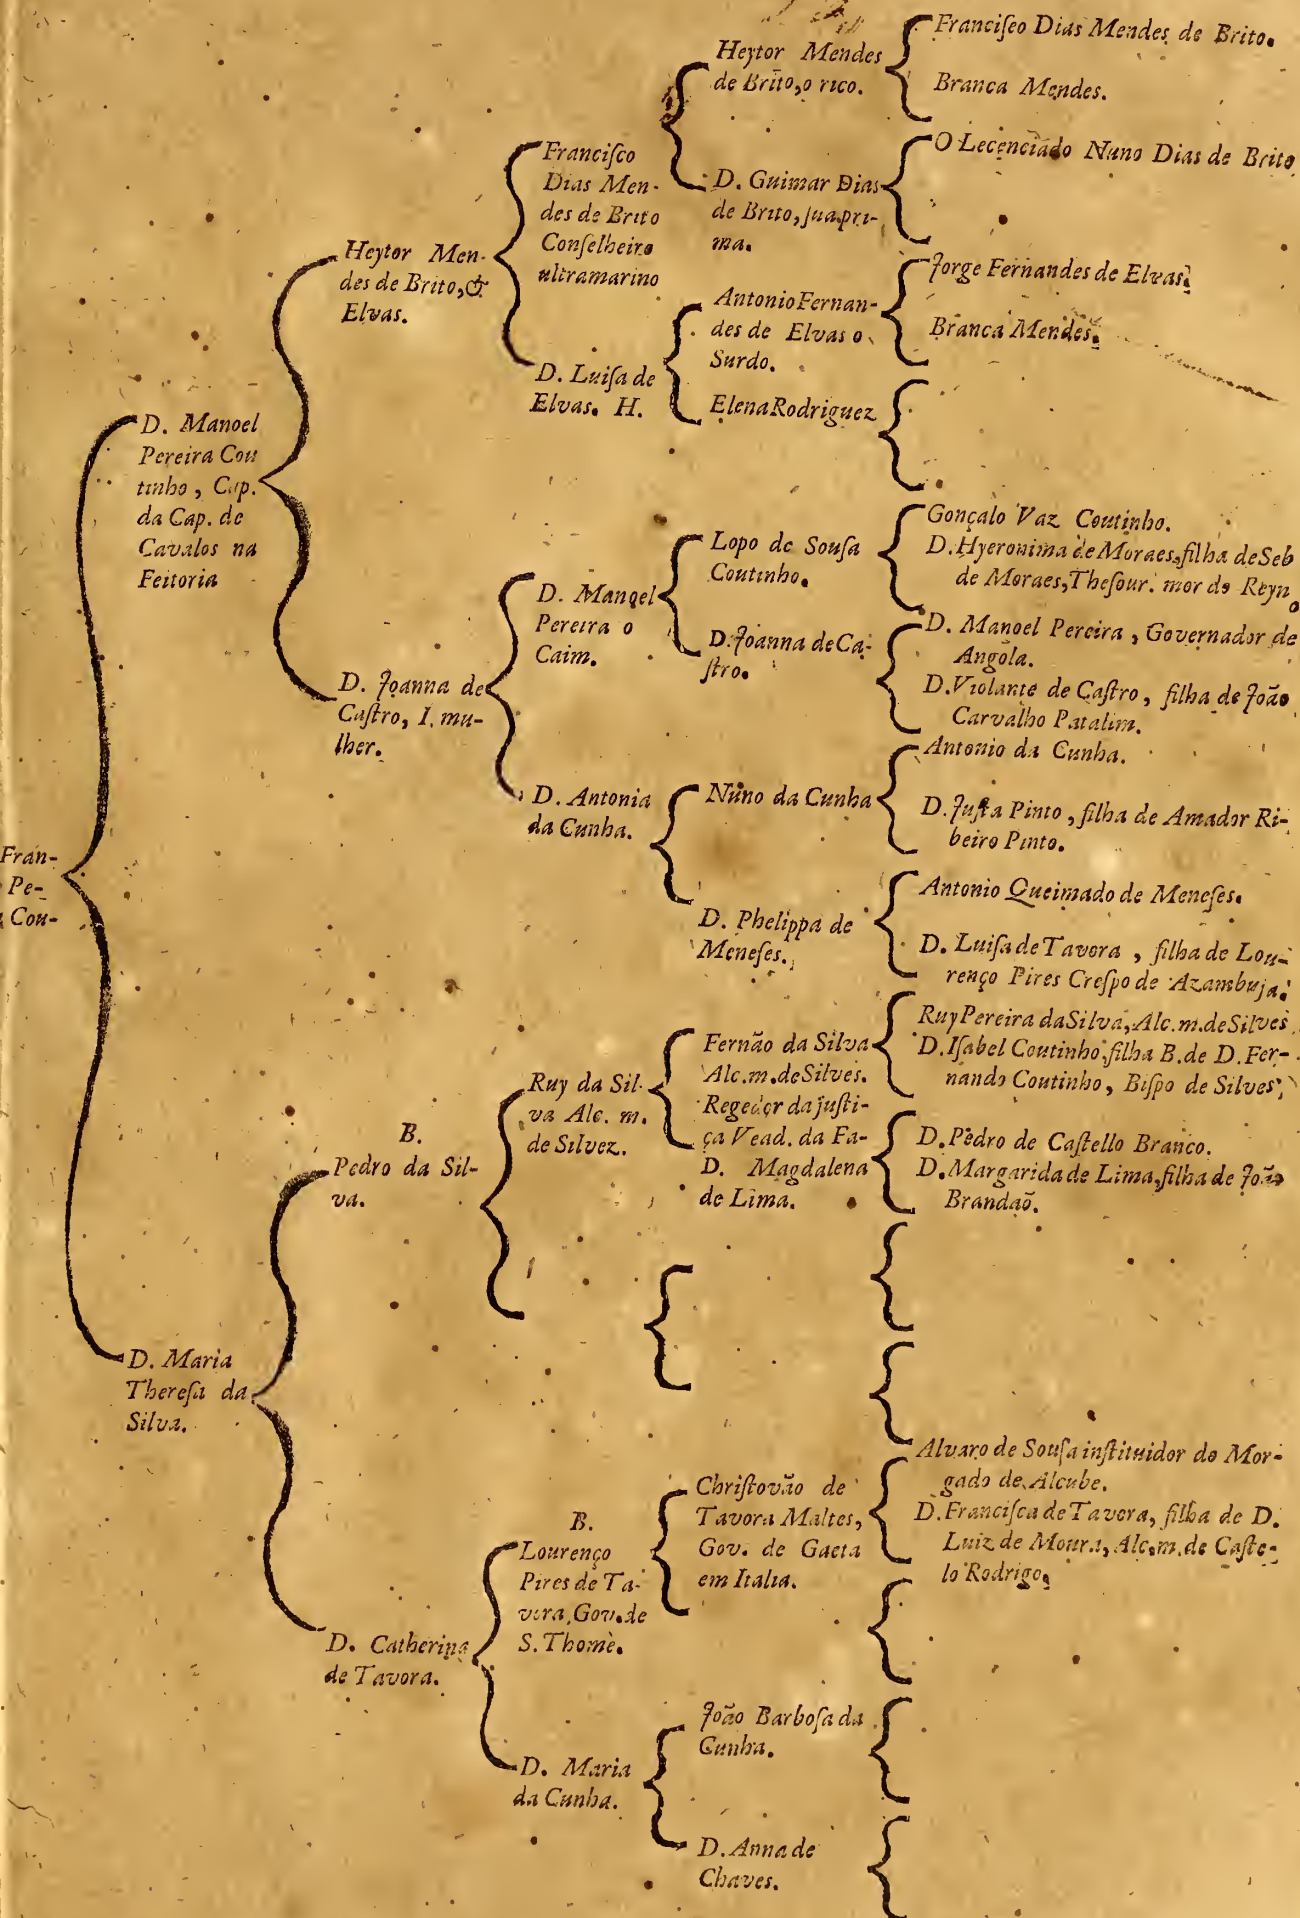 Fran-
Pe-
Cou-
D. Manoel
Pereira Cou
tinho, Cap.
da Cap. de
Cavalos na
Feitoria
D. Maria
Thereſa da
Silva.
Heytor Men-
des de Brito, &
Elvas.
D. Joanna de
Caſtro, I. mu-
lher.
B.
Pedro da Sil-
va.
D. Catherina
de Tavora.
Franciſco
Dias Men-
des de Brito
Conſelheiro
ultramarino
D. Luiſa de
Elvas. H.
D. Manoel
Pereira o
Caim.
D. Antonia
da Cunha.
Ruy da Sil-
va Alc. m.
de Silvez.
B.
Lourenço
Pires de Ta-
vora, Gov. de
S. Thomè.
D. Maria
da Cunha.
Heytor Mendes
de Brito, o rico.
D. Guimar Dias
de Brito, ſua pri-
ma.
Antonio Fernan-
des de Elvas o
Surdo.
Elena Rodriguez
Lopo de Souſa
Coutinho.
D. Joanna de Ca-
ſtro.
Nuno da Cunha
D. Phelippa de
Meneſes.
Fernão da Silva
Alc. m. de Silves.
Regedor da juſti-
ça Vead. da Fa-
D. Magdalena
de Lima.
Chriſtovão de
Tavora Maltes,
Gov. de Gaeta
em Italia.
João Barboſa da
Cunha.
D. Anna de
Chaves.
Franciſco Dias Mendes de Brito.
Branca Mendes.
O Lecenciado Nuno Dias de Brito
Jorge Fernandes de Elvas.
Branca Mendes.
Gonçalo Vaz Coutinho.
D. Hyeronima de Moraes, filha de Seb
de Moraes, Theſour. mor do Reyn
D. Manoel Pereira, Governador de
Angola.
D. Violante de Caſtro, filha de João
Carvalho Patalim.
Antonio da Cunha.
D. Juſta Pinto, filha de Amador Ri-
beiro Pinto.
Antonio Queimado de Meneſes.
D. Luiſa de Tavora, filha de Lou-
renço Pires Creſpo de Azambuja.
Ruy Pereira da Silva, Alc. m. de Silves
D. Iſabel Coutinho, filha B. de D. Fer-
nando Coutinho, Biſpo de Silves,
D. Pedro de Caſtello Branco.
D. Margarida de Lima, filha de João
Brandaõ.
Alvaro de Souſa inſtituidor do Mor-
gado de Alcube.
D. Franciſca de Tavora, filha de D.
Luiz de Moura, Alc. m. de Caſte-
lo Rodrigo.